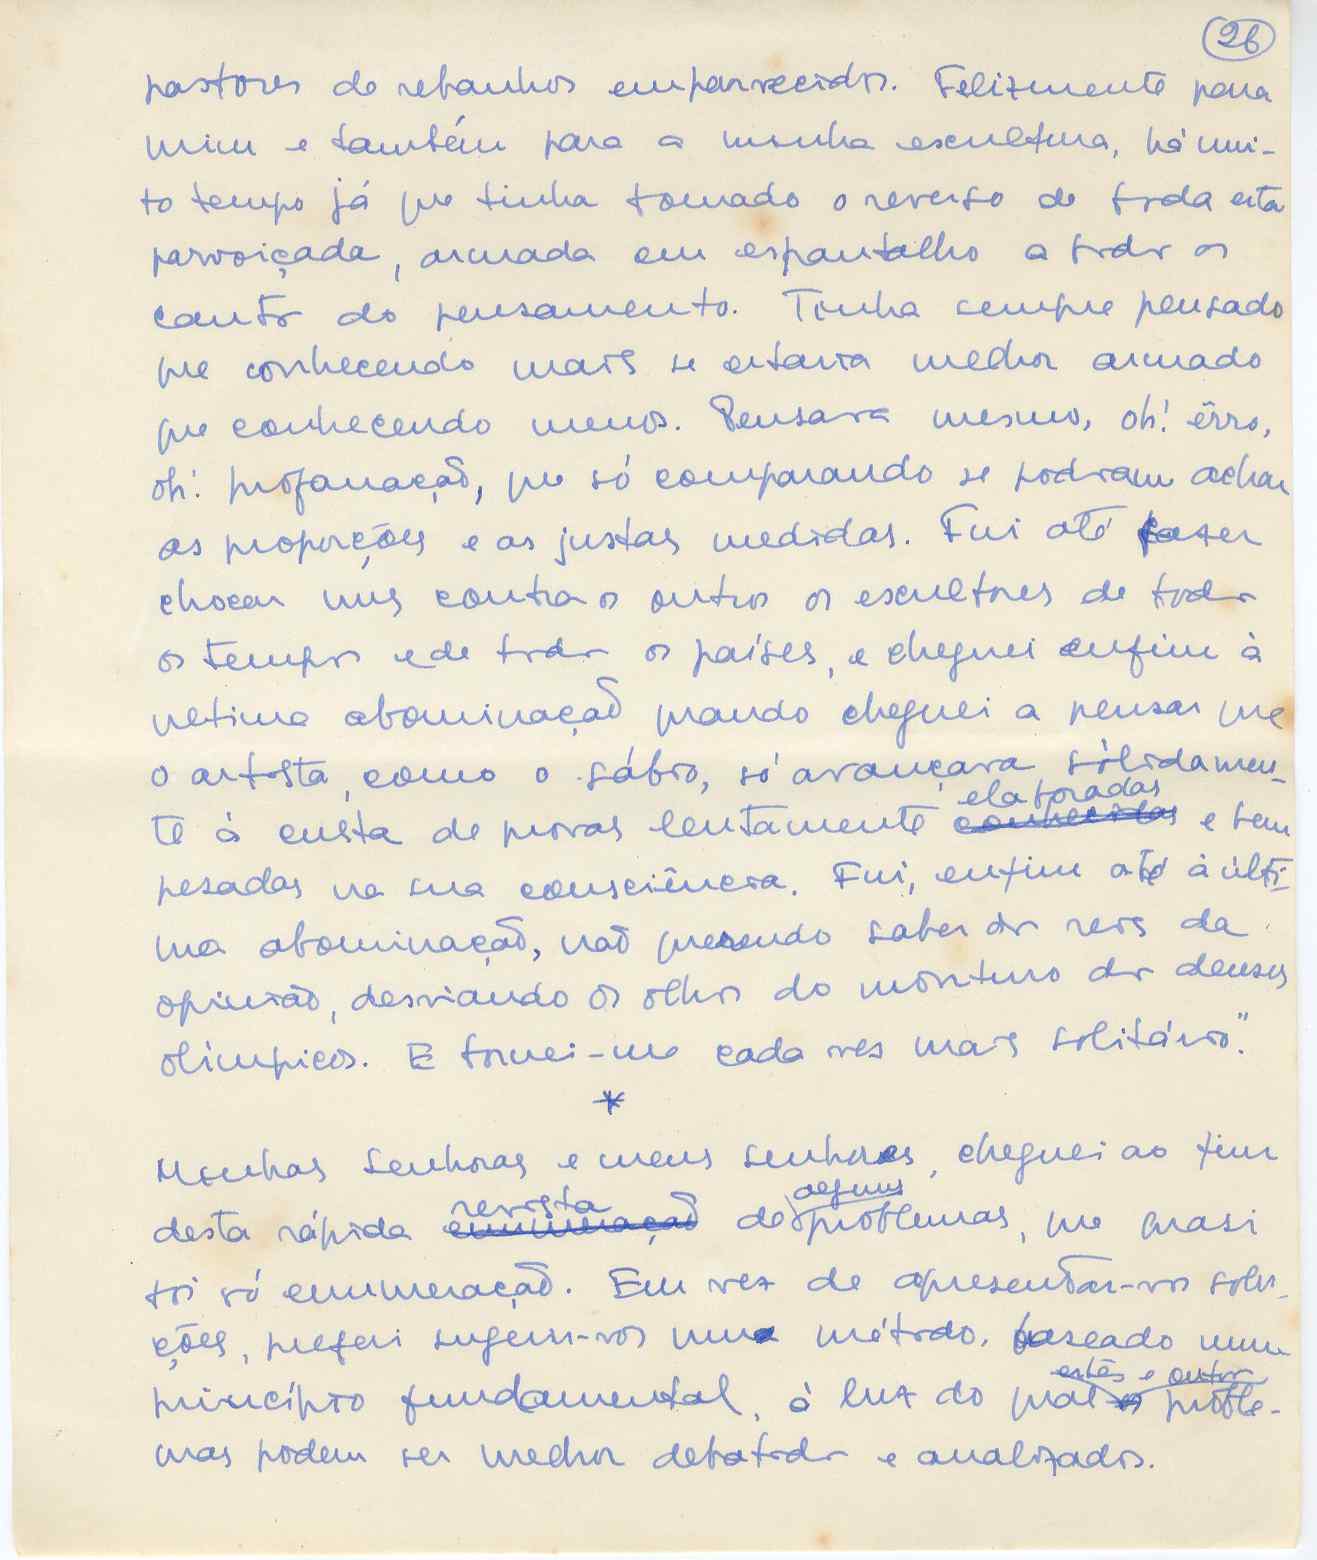 26
pastores de rebanhos emparvecidos. Felizmente para
mim e também para a minha escultura, há mui-
to tempo já que tinha tomado o reverso de toda esta
parvoiçada, armada em espantalho a todos os
cantos do pensamento. Tinha sempre pensado
que conhecendo mais se estaria melhor armado
que conhecendo menos. Pensava mesmo, oh! êrro,
oh! profanação, que só comparando se podiam achar
as proporções e as justas medidas. Fui até fazer
chocar uns contra os outros os escultores de todos
os tempos e de todos os países, e cheguei enfim à
última abominação quando cheguei a pensar que
o artista, como o sábio, só avançava sòlidamen-
elaboradas
te à custa de provas lentamente conhecidas e bem
pesadas na sua consciência. Fui, enfim até à últi-
ma abominação, não querendo saber dos reis da
opinião, desviando os olhos do monturo dos deuses
olímpicos. E tornei-me cada vez mais solitário."
*
Minhas Senhoras e meus senhores, cheguei ao fim
revista alguns
desta rápida enumeração de problemas, que quasi
foi só enumeração. Em vez de apresentar-vos solu-
ções, preferi sugerir-vos um método, baseado num
estes e outros
princípio fundamental, à luz do qual os proble-
mas podem ser melhor debatidos e analizados.